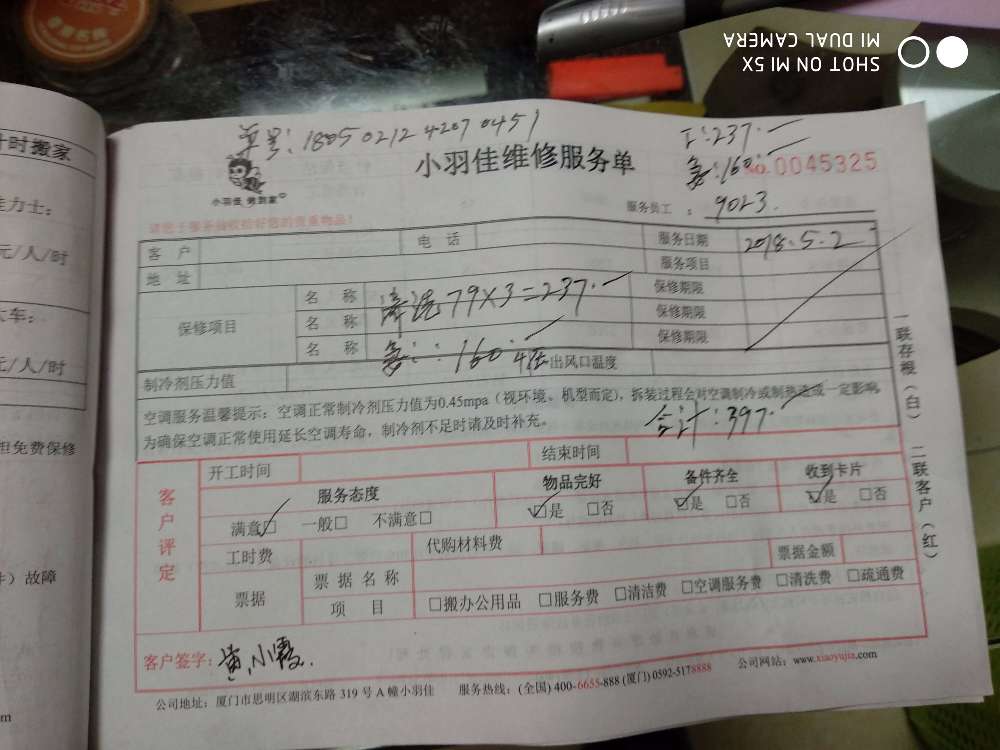 SHOT ON MI 5X
MI DUAL CAMERA
时搬家
力士：
元/人/时
车：
元/人/时
担免费保修
）故障
单号：1805021242070451
工：237.一
160.一
小羽佳维修服务单
NO.0045325
小羽佳 勞到家
服务员工：9023.
请您于服务前收拾好您的贵重物品！
客 户 电 话 服务日期 2018.5.2
地 址 服务项目
保修项目 名 称 清洗79×3=237.一 保修期限
名 称 保修期限
名 称 160.一 保修期限
制冷剂压力值 出风口温度
空调服务温馨提示：空调正常制冷剂压力值为0.45mpa（视环境、机型而定），拆装过程会对空调制冷或制热造成一定影响，
为确保空调正常使用延长空调寿命，制冷剂不足时请及时补充。
合计：397.一
一联存根（白） 二联客户（红）
客户评定
开工时间 结束时间
服务态度 物品完好 备件齐全 收到卡片
满意☑ 一般□ 不满意□ ☑是 □否 ☑是 □否 ☑是 □否
工时费 代购材料费
票据 票据名称 票据金额
项 目 □搬办公用品 □服务费 □清洁费 □空调服务费 □清洗费 □疏通费
客户签字：黄小霞.
公司地址：厦门市思明区湖滨东路 319 号 A 幢小羽佳 服务热线：(全国) 400-6655-888 (厦门) 0592-5178888 公司网站：www.xiaoyujia.com